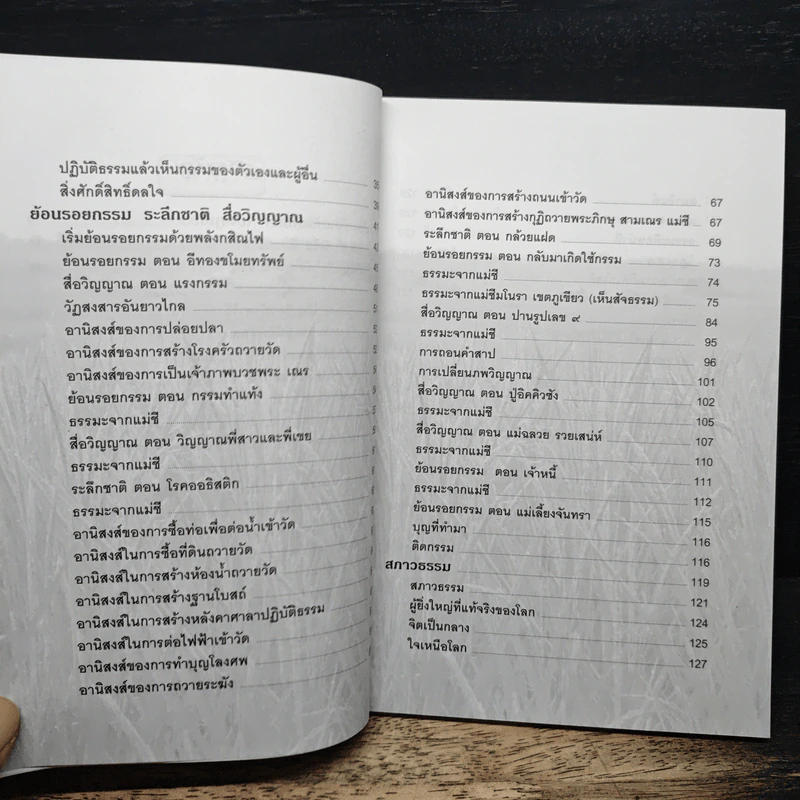 ปฏิบัติธรรมแล้วเห็นกรรมของตัวเองและผู้อื่น
สิ่งศักดิ์สิทธิ์ดลใจ
ย้อนรอยกรรม ระลึกชาติ สื่อวิญญาณ
เริ่มย้อนรอยกรรมด้วยพลังกสิณไฟ
ย้อนรอยกรรม ตอน อีทองขโมยทรัพย์
สื่อวิญญาณ ตอน แรงกรรม
วัฏสงสารอันยาวไกล
อานิสงส์ของการปล่อยปลา
อานิสงส์ของการสร้างโรงครัวถวายวัด
อานิสงส์ของการเป็นเจ้าภาพบวชพระ เณร
ย้อนรอยกรรม ตอน กรรมทำแท้ง
ธรรมะจากแม่ชี
สื่อวิญญาณ ตอน วิญญาณพี่สาวและพี่เขย
ธรรมะจากแม่ชี
ระลึกชาติ ตอน โรคออธิสติก
ธรรมะจากแม่ชี
อานิสงส์ของการซื้อท่อเพื่อต่อน้ำเข้าวัด
อานิสงส์ในการซื้อที่ดินถวายวัด
อานิสงส์ในการสร้างห้องน้ำถวายวัด
อานิสงส์ในการสร้างฐานโบสถ์
อานิสงส์ในการสร้างหลังคาศาลาปฏิบัติธรรม
อานิสงส์ในการต่อไฟฟ้าเข้าวัด
อานิสงส์ของการทำบุญโลงศพ
อานิสงส์ของการถวายระฆัง
อานิสงส์ของการสร้างถนนเข้าวัด 67
อานิสงส์ของการสร้างกุฏิถวายพระภิกษุ สามเณร แม่ชี 67
ระลึกชาติ ตอน กล้วยแฝด 69
ย้อนรอยกรรม ตอน กลับมาเกิดใช้กรรม 73
ธรรมะจากแม่ชี 74
ธรรมะจากแม่ชีมโนรา เขตภูเขียว (เห็นสัจธรรม) 75
สื่อวิญญาณ ตอน ปานรูปเลข ๙ 84
ธรรมะจากแม่ชี 95
การถอนคำสาป 96
การเปลี่ยนภพวิญญาณ 101
สื่อวิญญาณ ตอน ปู่อิคคิวซัง 102
ธรรมะจากแม่ชี 105
สื่อวิญญาณ ตอน แม่ฉลวย รวยเสน่ห์ 107
ธรรมะจากแม่ชี 110
ย้อนรอยกรรม ตอน เจ้าหนี้ 111
ธรรมะจากแม่ชี 112
ย้อนรอยกรรม ตอน แม่เลี้ยงจันทรา 115
บุญที่ทำมา 116
ติดกรรม 116
สภาวธรรม 119
สภาวธรรม 121
ผู้ยิ่งใหญ่ที่แท้จริงของโลก 124
จิตเป็นกลาง 125
ใจเหนือโลก 127